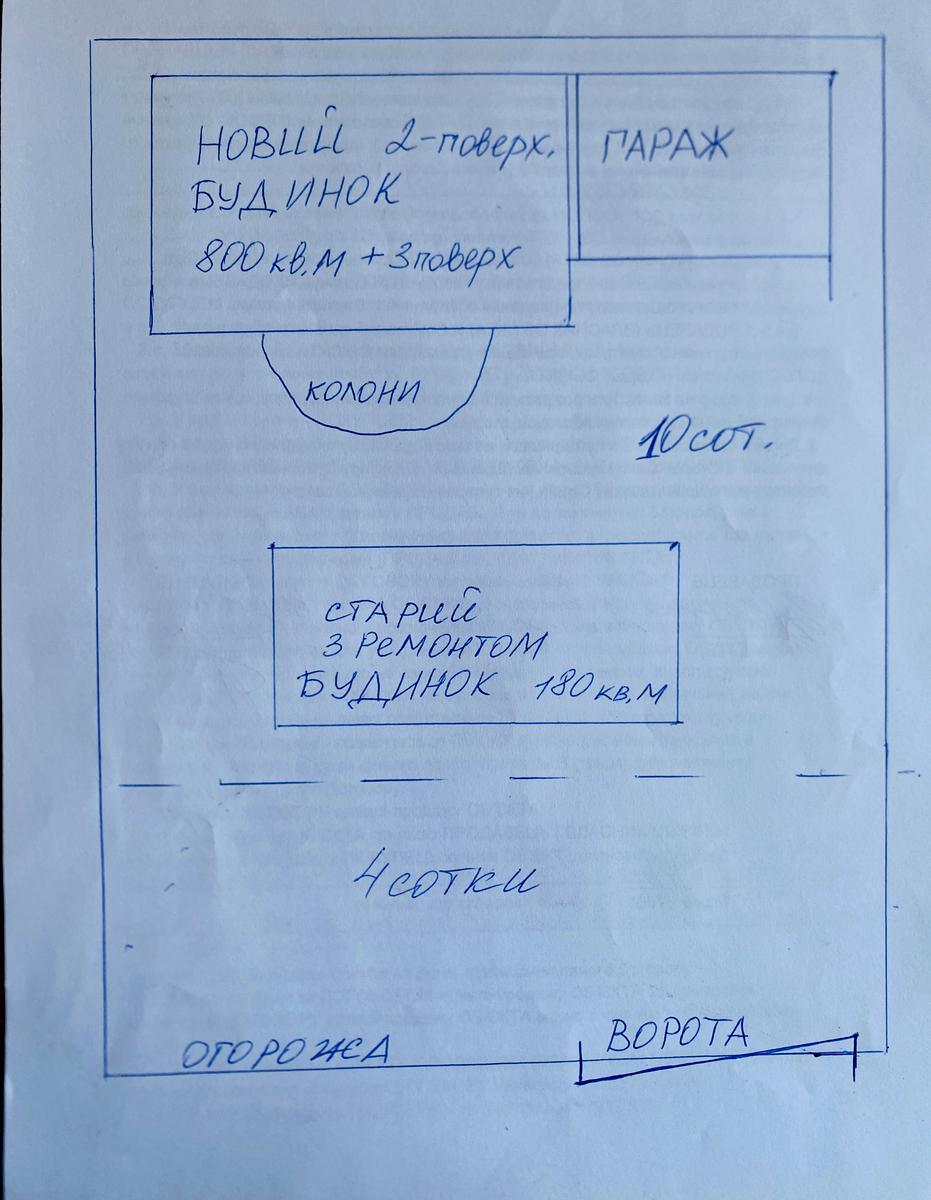 НОВИЙ 2-поверх.
БУДИНОК
800 кв.м + 3 поверх
ГАРАЖ
КОЛОНИ
10 сот.
СТАРИЙ
З РЕМОНТОМ
БУДИНОК 180 кв.м
4 СОТКИ
ОГОРОЖА
ВОРОТА